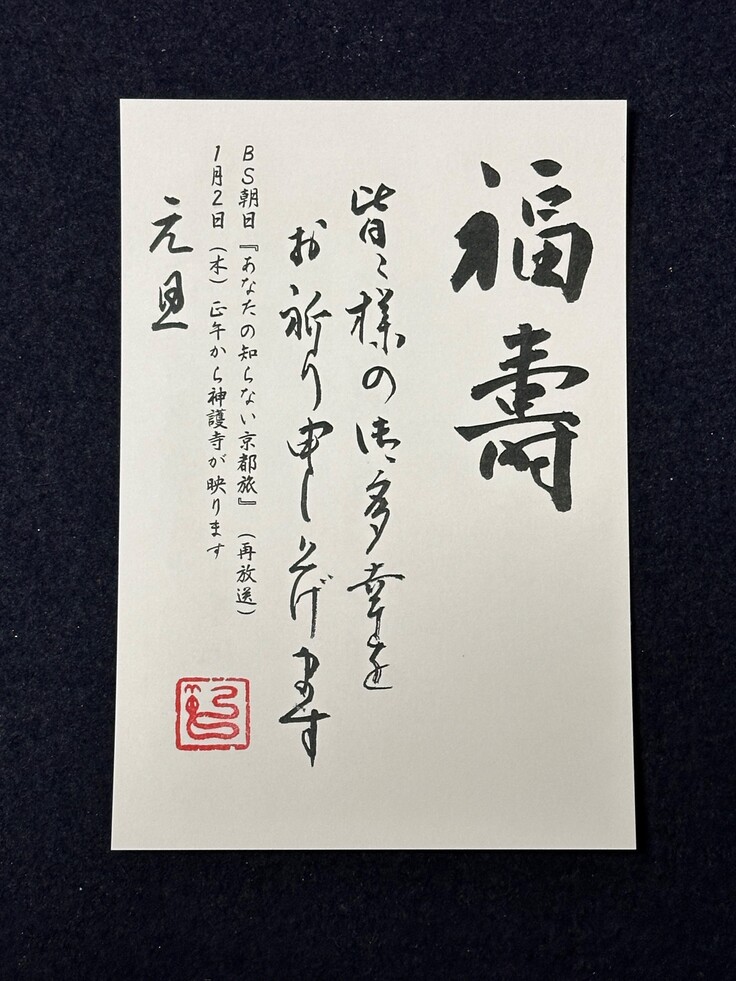 福壽
皆々様の御多幸を
お祈り申し上げます
BS朝日『あなたの知らない京都旅』(再放送)
1月2日(木)正午から神護寺が映ります
元旦